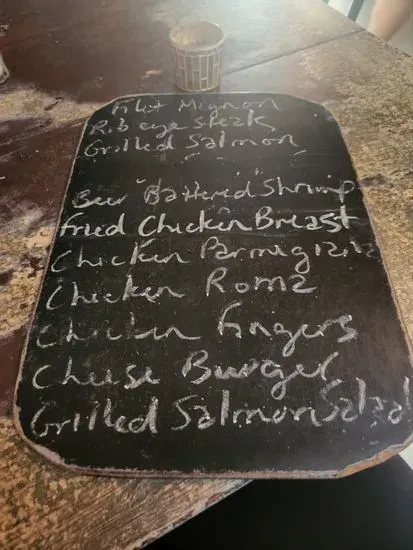 Filet Mignon
Rib eye Steak
Grilled Salmon
Beer "Battered" Shrimp
Fried Chicken Breast
Chicken Parmigiana
Chicken Roma
Chicken fingers
Cheese Burger
Grilled Salmon Salad